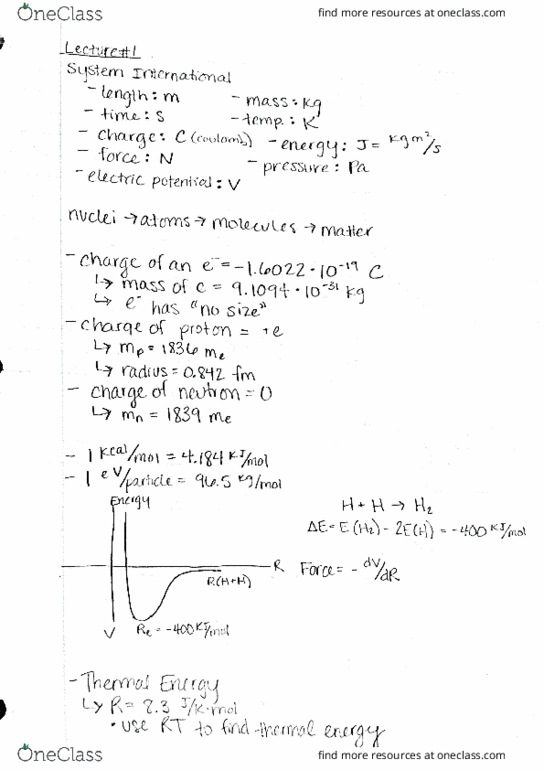 OneClass find more resources at oneclass.com
Lecture #1
System International
- length: m - mass: kg
- time: s - temp.: K
- charge: C (coulomb) - energy: J = kgm²/s
- force: N - pressure: Pa
- electric potential: V
nuclei → atoms → molecules → matter
- charge of an e⁻ = -1.6022 · 10⁻¹⁹ C
↳ mass of e = 9.1094 · 10⁻³¹ kg
↳ e⁻ has "no size"
- charge of proton = +e
↳ mp = 1836 me
↳ radius = 0.842 fm
- charge of neutron = 0
↳ mn = 1839 me
- 1 kcal/mol = 4.184 KJ/mol
- 1 eV/particle = 96.5 kg/mol
Energy
H + H → H₂
ΔE = E(H₂) - 2E(H) = -400 KJ/mol
R
Force = - dV/dR
R(H+H)
V
Re = -400 KJ/mol
- Thermal Energy
↳ R = 8.3 J/K·mol
• use RT to find thermal energy
OneClass find more resources at oneclass.com